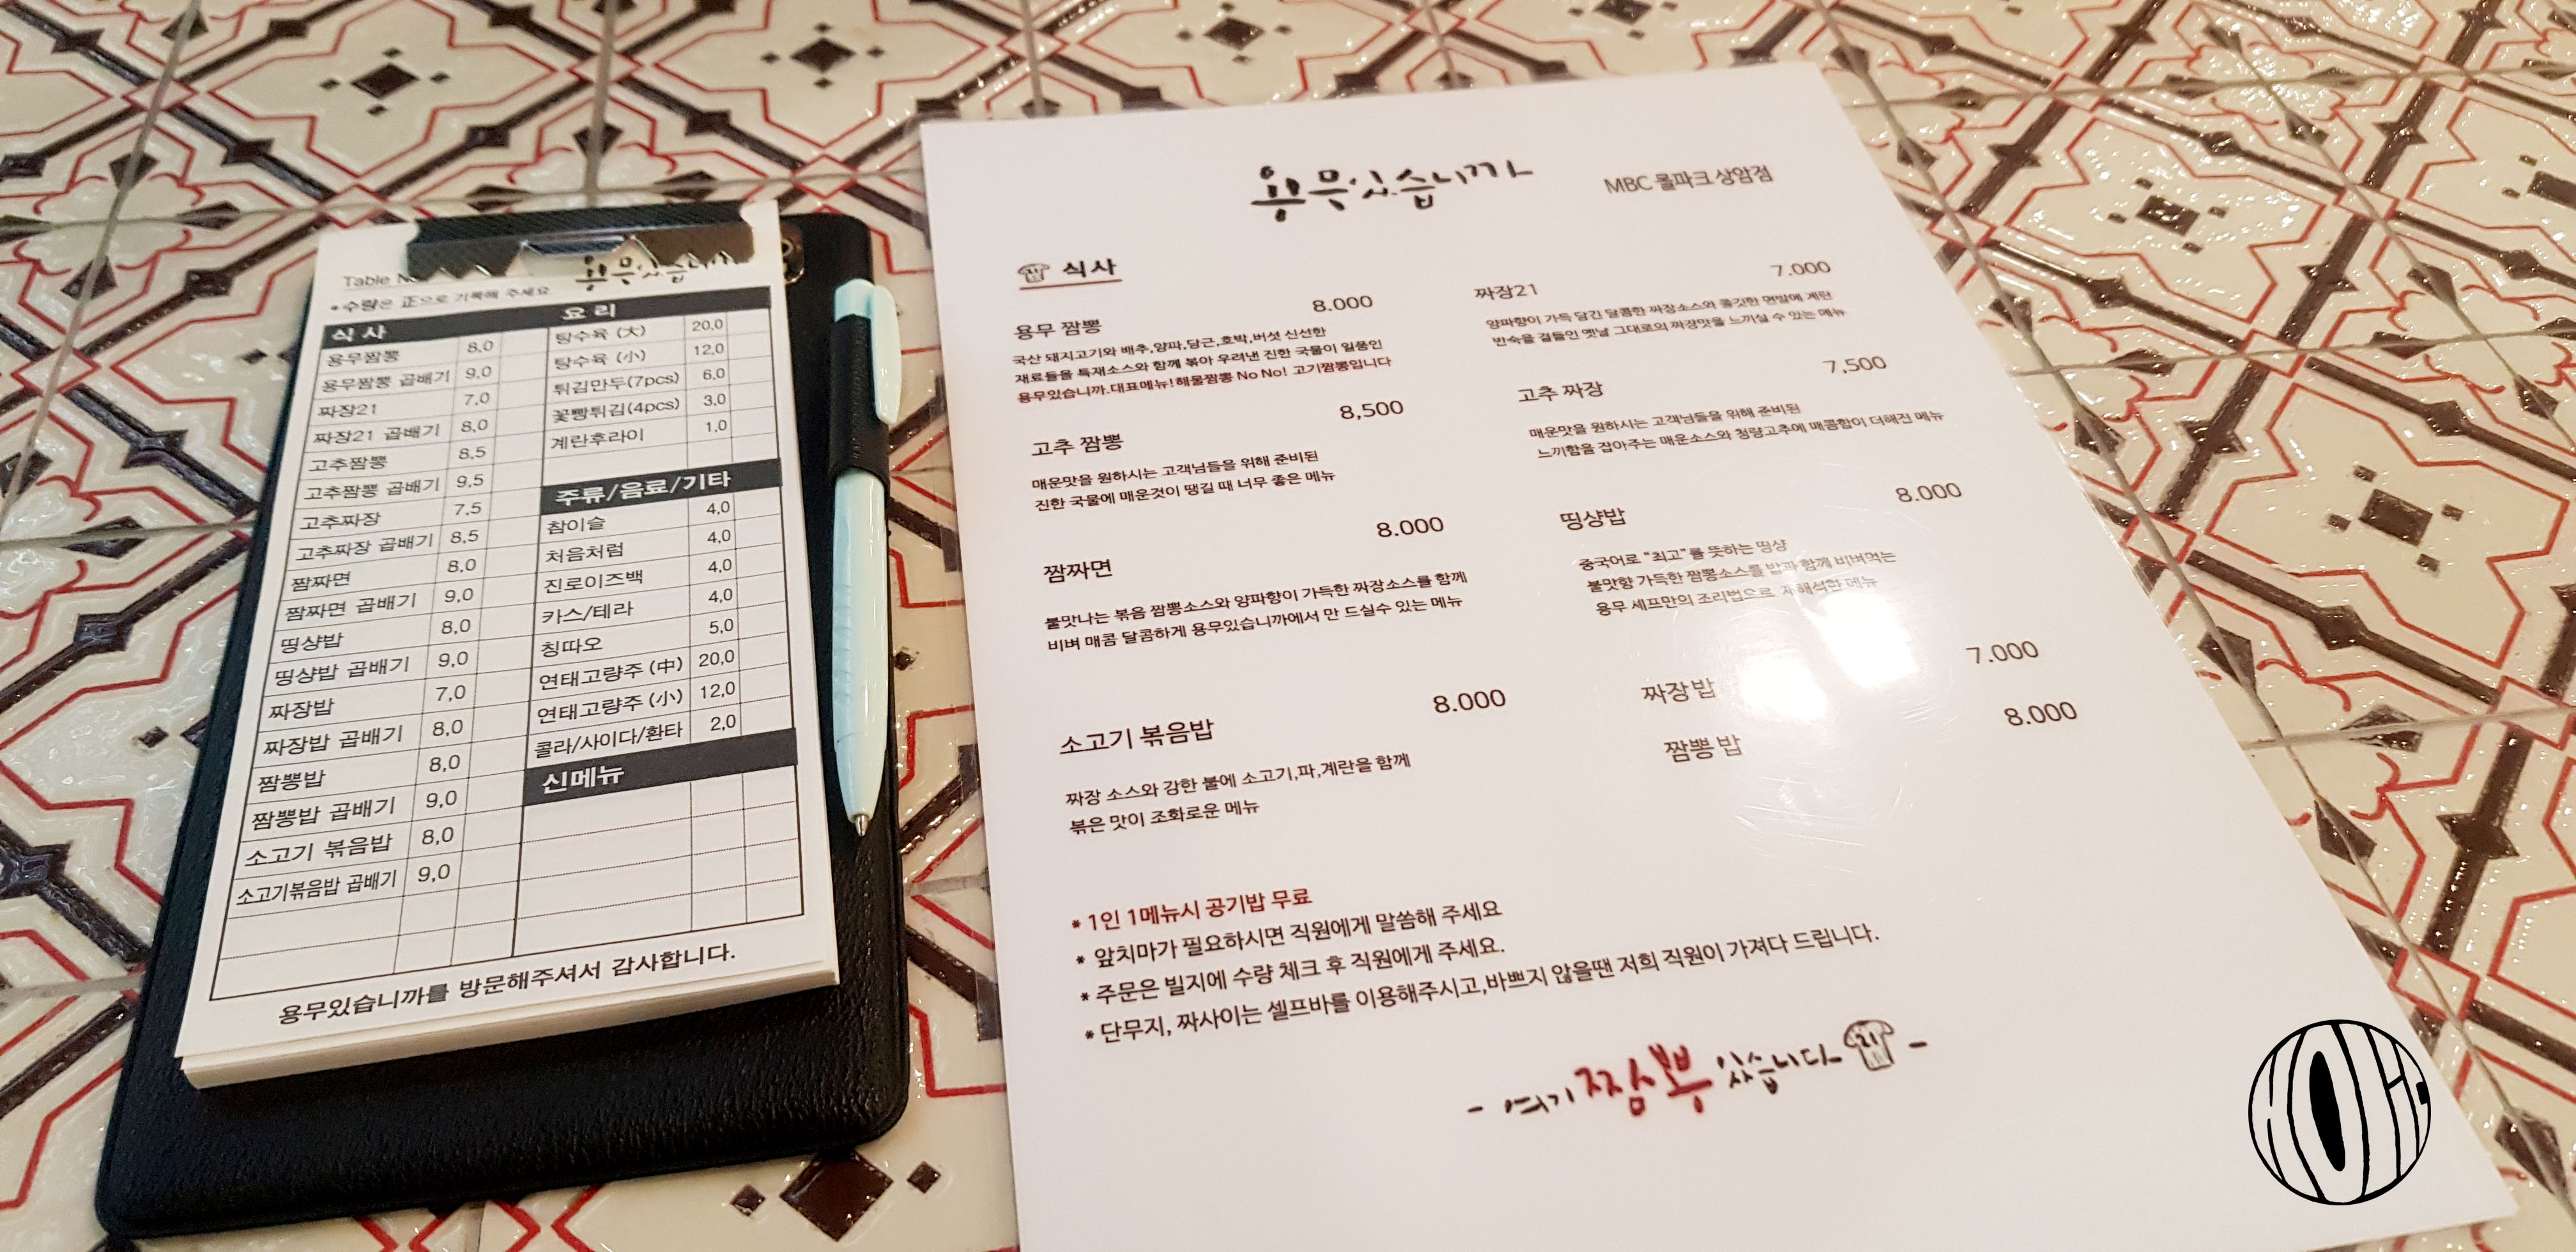 Table No
용무있습니까
*수량은 正으로 기록해 주세요
식사
용무짬뽕 8,0
용무짬뽕 곱배기 9,0
짜장21 7,0
짜장21 곱배기 8,0
고추짬뽕 8,5
고추짬뽕 곱배기 9,5
고추짜장 7,5
고추짜장 곱배기 8,5
짬짜면 8,0
짬짜면 곱배기 9,0
띵샹밥 8,0
띵샹밥 곱배기 9,0
짜장밥 7,0
짜장밥 곱배기 8,0
짬뽕밥 8,0
짬뽕밥 곱배기 9,0
소고기 볶음밥 8,0
소고기볶음밥 곱배기 9,0
요리
탕수육 (大) 20,0
탕수육 (小) 12,0
튀김만두(7pcs) 6,0
꽃빵튀김(4pcs) 3,0
계란후라이 1,0
주류/음료/기타
참이슬 4,0
처음처럼 4,0
진로이즈백 4,0
카스/테라 4,0
칭따오 5,0
연태고량주 (中) 20,0
연태고량주 (小) 12,0
콜라/사이다/환타 2,0
신메뉴
용무있습니까를 방문해주셔서 감사합니다.
용무있습니까
MBC 몰파크 상암점
식사
용무 짬뽕 8.000
국산 돼지고기와 배추,양파,당근,호박,버섯 신선한
재료들을 특재소스와 함께 볶아 우려낸 진한 국물이 일품인
용무있습니까.대표메뉴!해물짬뽕 No No! 고기짬뽕입니다
고추 짬뽕 8,500
매운맛을 원하시는 고객님들을 위해 준비된
진한 국물에 매운것이 땡길 때 너무 좋은 메뉴
짬짜면 8.000
불맛나는 볶음 짬뽕소스와 양파향이 가득한 짜장소스를 함께
비벼 매콤 달콤하게 용무있습니까에서 만 드실수 있는 메뉴
소고기 볶음밥 8.000
짜장 소스와 강한 불에 소고기,파,계란을 함께
볶은 맛이 조화로운 메뉴
짜장21 7.000
양파향이 가득 담긴 달콤한 짜장소스와 쫄깃한 면발에 계란
반숙을 곁들인 옛날 그대로의 짜장맛을 느끼실 수 있는 메뉴
고추 짜장 7,500
매운맛을 원하시는 고객님들을 위해 준비된
느끼함을 잡아주는 매운소스와 청량고추에 매콤함이 더해진 메뉴
띵샹밥 8.000
중국어로 "최고"를 뜻하는 띵샹
불맛향 가득한 짬뽕소스를 밥과 함께 비벼먹는
용무 셰프만의 조리법으로 재해석한 메뉴
짜장밥 7.000
짬뽕 밥 8.000
* 1인 1메뉴시 공기밥 무료
* 앞치마가 필요하시면 직원에게 말씀해 주세요
* 주문은 빌지에 수량 체크 후 직원에게 주세요.
* 단무지, 짜사이는 셀프바를 이용해주시고,바쁘지 않을땐 저희 직원이 가져다 드립니다.
- 여기 짬뽕 있습니다 21 -